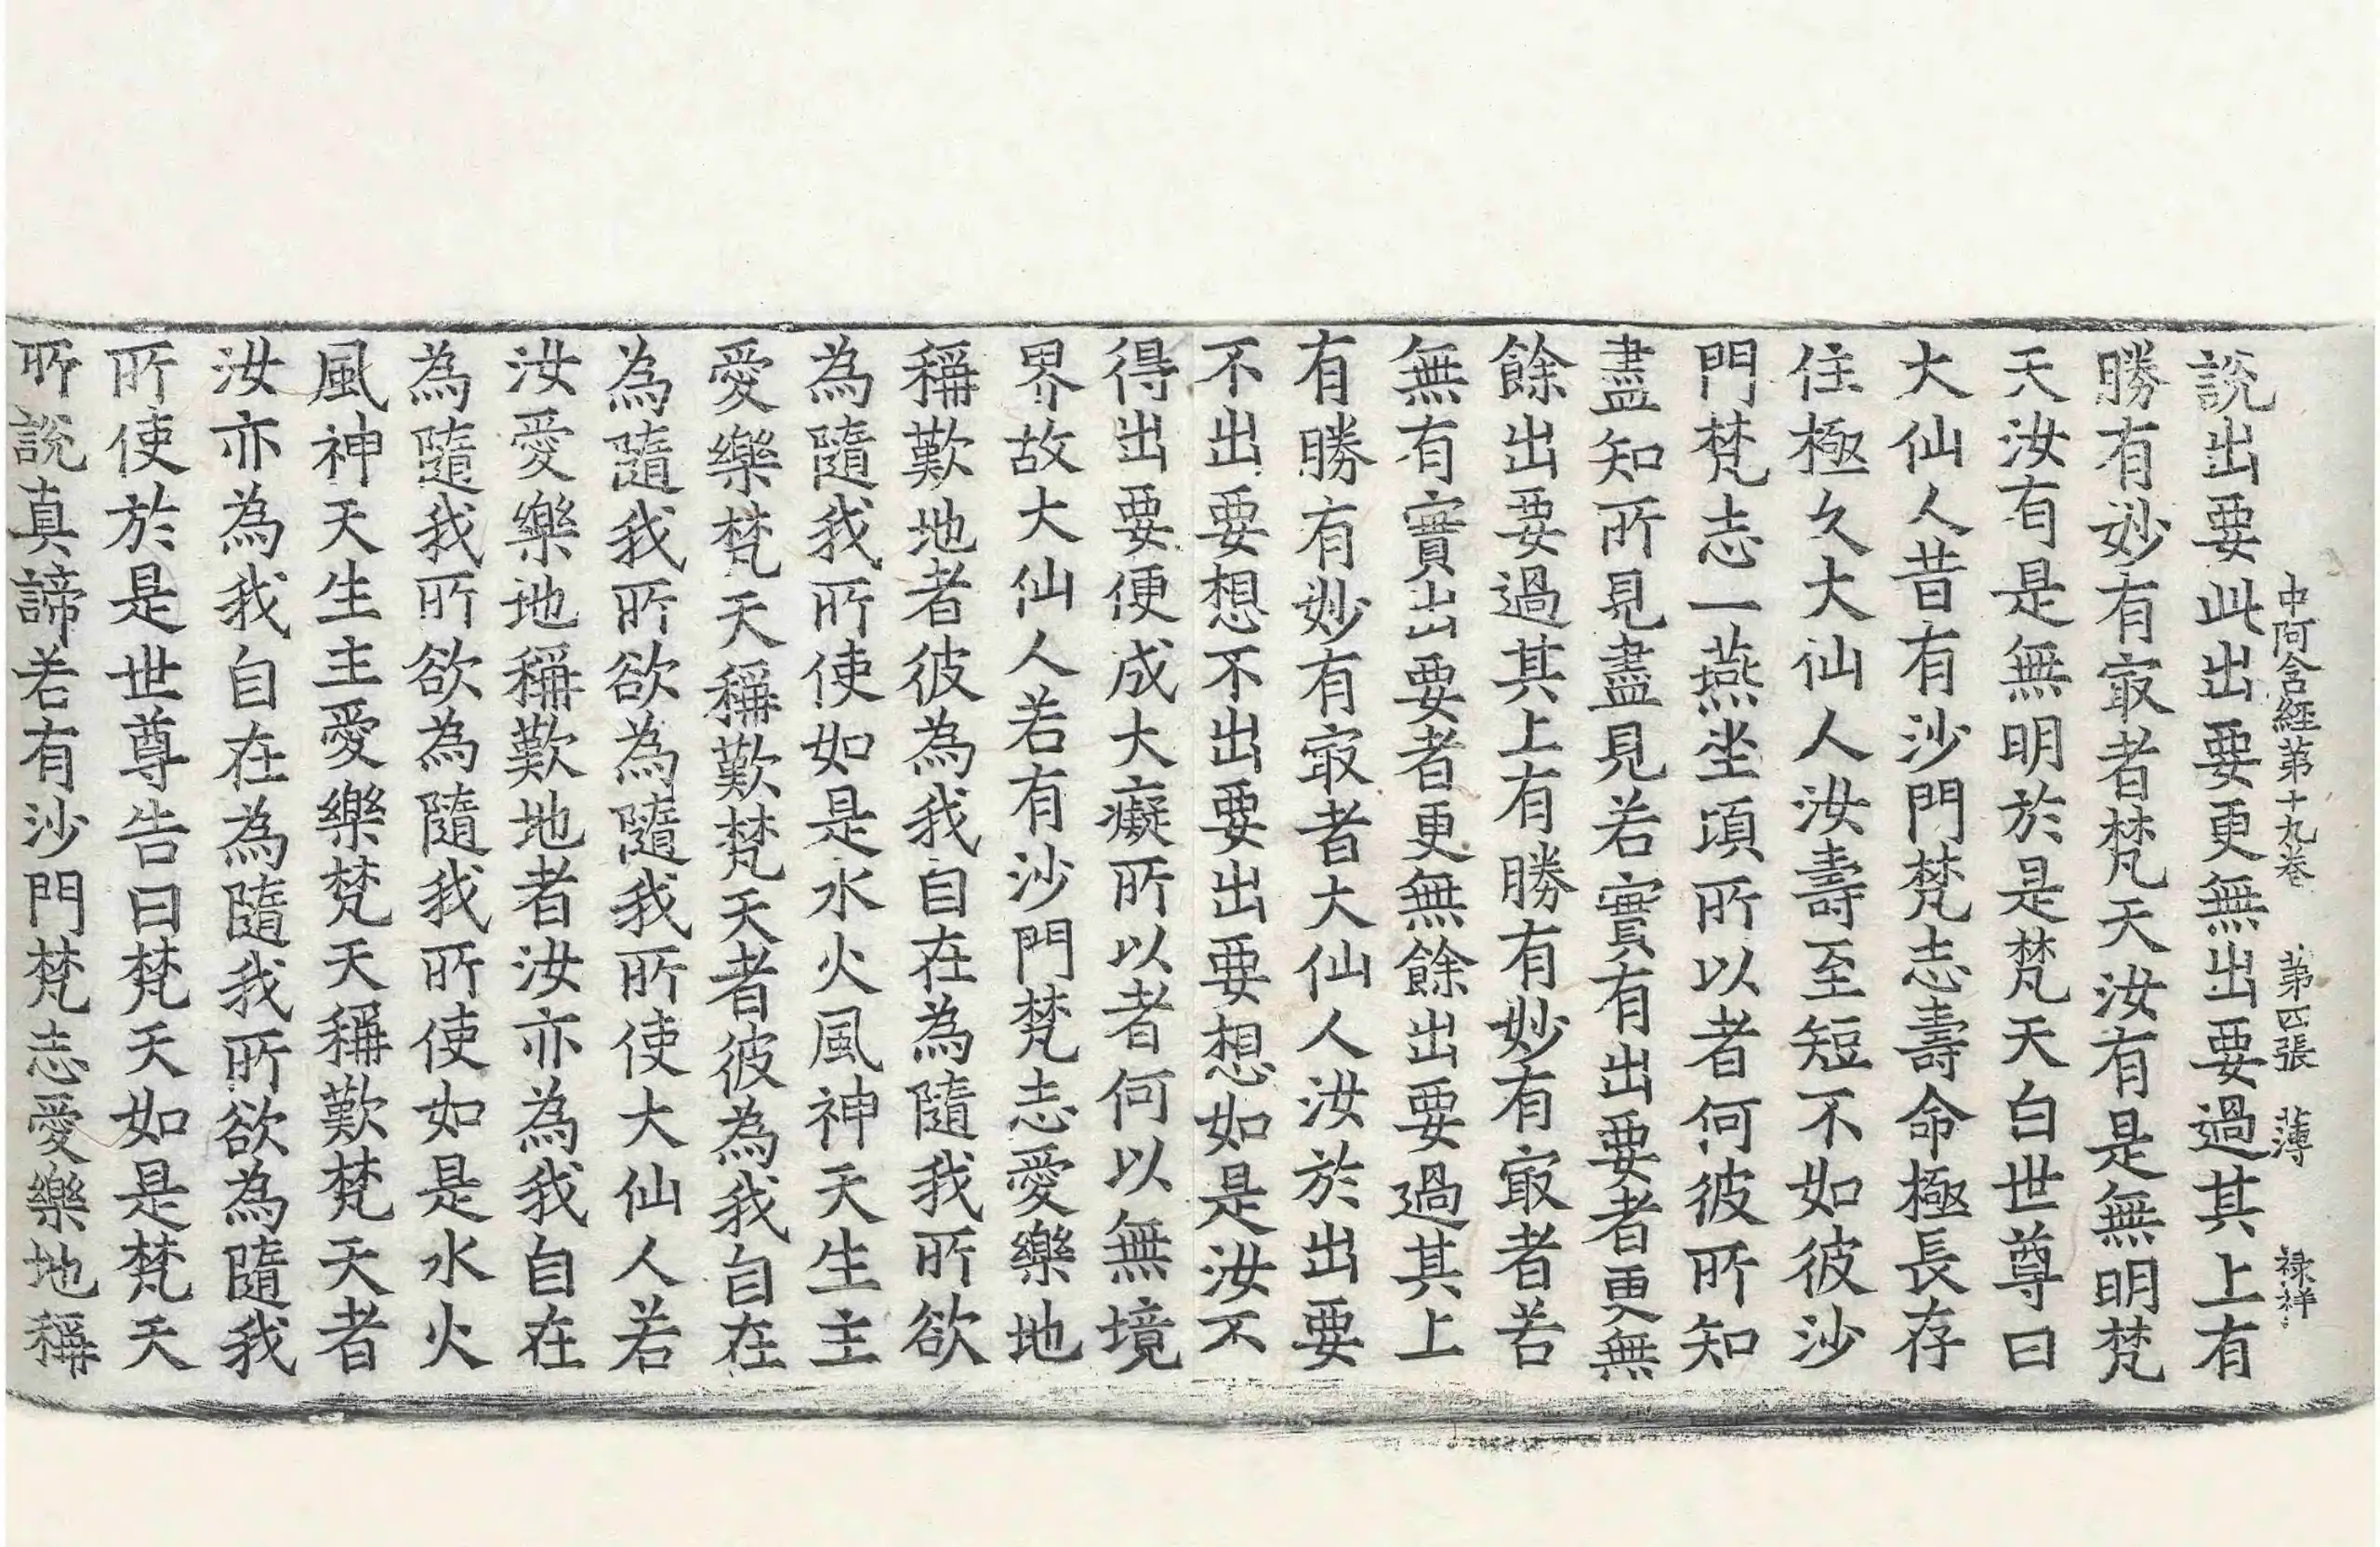 中阿含經第十九卷 第四張 薄 禄祥
說出要此出要更無出要過其上有
勝有妙有㝡者梵天汝有是無明梵
天汝有是無明於是梵天白世尊曰
大仙人昔有沙門梵志壽命極長存
住極久大仙人汝壽至短不如彼沙
門梵志一燕坐項所以者何彼所知
盡知所見盡見若實有出要者更無
餘出要過其上有勝有妙有㝡者若
無有實出要者更無餘出要過其上
有勝有妙有㝡者大仙人汝於出要
不出要想不出要出要想如是汝不
得出要便成大癡所以者何以無境
界故大仙人若有沙門梵志愛樂地
稱歎地者彼為我自在為隨我所欲
為隨我所使如是水火風神天生主
愛樂梵天稱歎梵天者彼為我自在
為隨我所欲為隨我所使大仙人若
汝愛樂地稱歎地者汝亦為我自在
為隨我所欲為隨我所使如是水火
風神天生主愛樂梵天稱歎梵天者
汝亦為我自在為隨我所欲為隨我
所使於是世尊告曰梵天如是梵天
所說真諦若有沙門梵志愛樂地稱